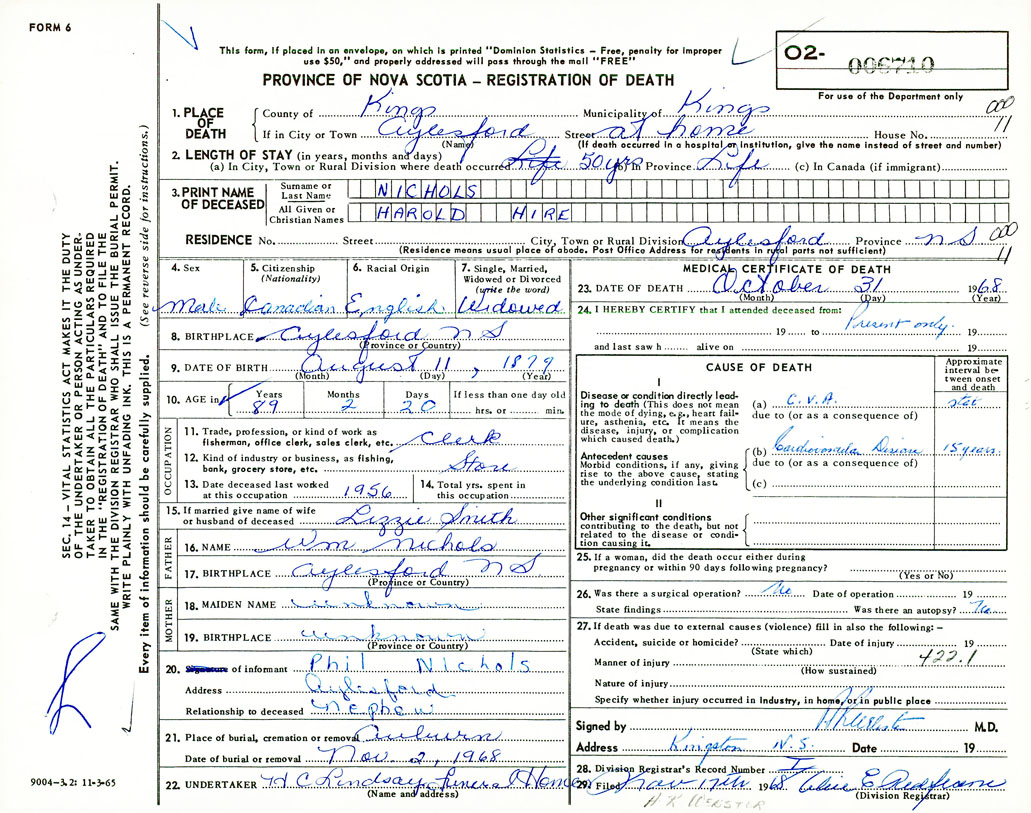 FORM 6
This form, if placed in an envelope, on which is printed "Dominion Statistics – Free, penalty for improper
use $50," and properly addressed will pass through the mail "FREE"
PROVINCE OF NOVA SCOTIA – REGISTRATION OF DEATH
O2- 006710
For use of the Department only
000
11
SEC. 14 – VITAL STATISTICS ACT MAKES IT THE DUTY
OF THE UNDERTAKER OR PERSON ACTING AS UNDER-
TAKER TO OBTAIN ALL THE PARTICULARS REQUIRED
IN THE "REGISTRATION OF DEATH" AND TO FILE THE
SAME WITH THE DIVISION REGISTRAR WHO SHALL ISSUE THE BURIAL PERMIT.
WRITE PLAINLY WITH UNFADING INK. THIS IS A PERMANENT RECORD.
Every item of information should be carefully supplied. (See reverse side for instructions.)
1. PLACE OF DEATH
County of Kings Municipality of Kings
If in City or Town Aylesford Street at home House No.
(Name) (If death occurred in a hospital or institution, give the name instead of street and number)
2. LENGTH OF STAY (in years, months and days)
(a) In City, Town or Rural Division where death occurred Life 50 yrs (b) In Province Life (c) In Canada (if immigrant)
3. PRINT NAME OF DECEASED
Surname or Last Name NICHOLS
All Given or Christian Names HAROLD HIRE
RESIDENCE No. Street City, Town or Rural Division Aylesford Province N S
(Residence means usual place of abode. Post Office Address for residents in rural parts not sufficient)
000
11
4. Sex
Male
5. Citizenship (Nationality)
Canadian
6. Racial Origin
English
7. Single, Married, Widowed or Divorced (write the word)
Widowed
8. BIRTHPLACE Aylesford N S
(Province or Country)
9. DATE OF BIRTH August 11, 1879
(Month) (Day) (Year)
10. AGE in Years Months Days If less than one day old
89 2 20 hrs. or min.
OCCUPATION
11. Trade, profession, or kind of work as
fisherman, office clerk, sales clerk, etc. Clerk
12. Kind of industry or business, as fishing,
bank, grocery store, etc. Store
13. Date deceased last worked
at this occupation 1956
14. Total yrs. spent in
this occupation
15. If married give name of wife
or husband of deceased Lizzie Smith
FATHER
16. NAME Wm Nichols
17. BIRTHPLACE Aylesford N S.
(Province or Country)
MOTHER
18. MAIDEN NAME unknown
19. BIRTHPLACE unknown
(Province or Country)
20. Signature of informant Phil Nichols
Address Aylesford
Relationship to deceased Nephew
21. Place of burial, cremation or removal Auburn
Date of burial or removal Nov. 2, 1968
22. UNDERTAKER H C Lindsay Funeral Home
(Name and address)
9004–3.2: 11-3-65
MEDICAL CERTIFICATE OF DEATH
23. DATE OF DEATH October 31 1968
(Month) (Day) (Year)
24. I HEREBY CERTIFY that I attended deceased from:
19 to Present only. 19
and last saw h alive on 19
CAUSE OF DEATH
Approximate interval between onset and death
I
Disease or condition directly leading
to death (This does not mean
the mode of dying, e.g., heart failure,
asthenia, etc. It means the
disease, injury, or complication
which caused death.)
(a) C.V.A. stat
due to (or as a consequence of)
Antecedent causes
Morbid conditions, if any, giving
rise to the above cause, stating
the underlying condition last.
(b) 15 years.
due to (or as a consequence of)
(c)
II
Other significant conditions
contributing to the death, but not
related to the disease or condition
causing it.
25. If a woman, did the death occur either during
pregnancy or within 90 days following pregnancy?
(Yes or No)
26. Was there a surgical operation? No Date of operation 19
State findings Was there an autopsy? No
27. If death was due to external causes (violence) fill in also the following: –
Accident, suicide or homicide? Date of injury 19
(State which) 422.1
Manner of injury
(How sustained)
Nature of injury
Specify whether injury occurred in industry, in home, or in public place
Signed by M.D.
Address Kingston N.S. Date 19
28. Division Registrar's Record Number
29. Filed Nov 17th 1968
(Division Registrar)
H K WEBSTER